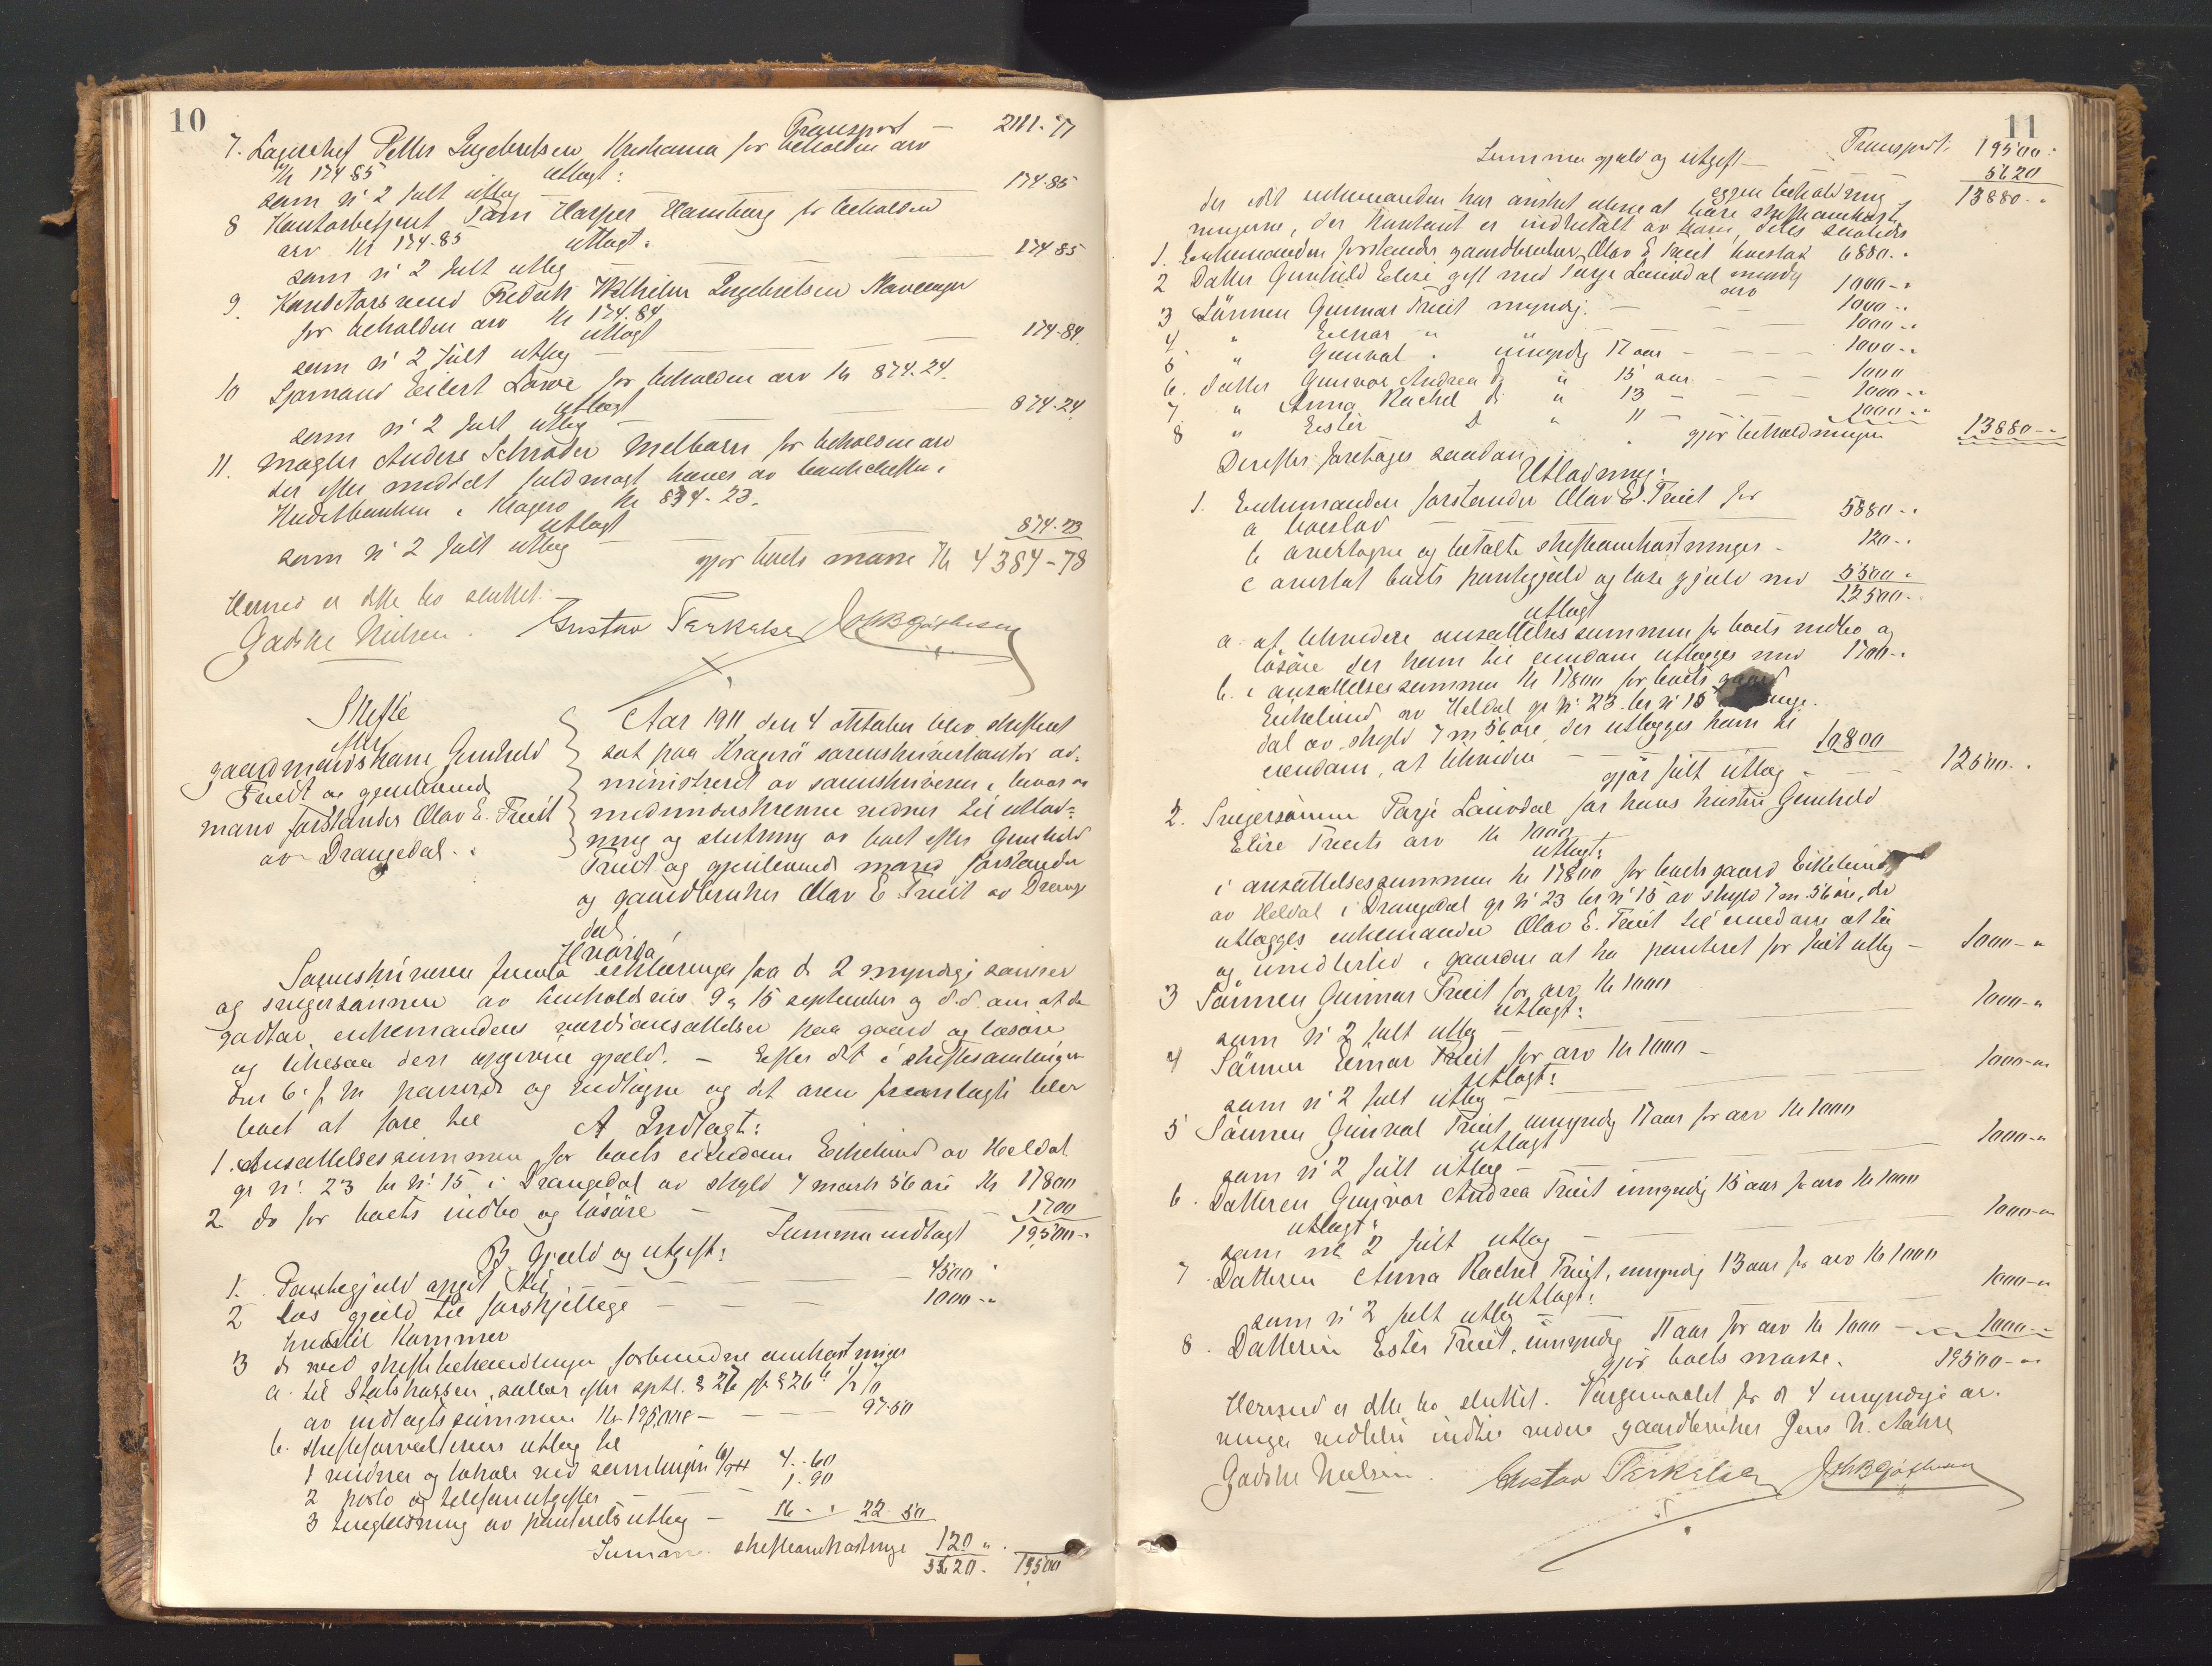 10
Transport — 2111-77
7. Lagerchef Petter Ingebretsen Kristiania for beholden arv
Kr 174 85 utlagt:
som nr 2 fult utlæg — 174-85
8 Kontorbetjent Tom Harper Hamburg for beholden
arv Kr 174-85 utlagt:
som nr 2 fult utlæg — 174 85
9. Konditorsvend Fredrik Wilhelm Ingebretsen Stavanger
for beholden arv Kr 174.84
utlagt
som nr 2 fult utlæg — 174-84
10 Sjømand Eilert Lowe for beholden arv Kr 874.24
utlagt
som nr 2 fult utlæg — 874-24
11. mægler Anders Schrøder Melborn for beholden arv
der efter meddelt fuldmagt hæves av bankchefen i
Kreditbanken i Kragerø Kr 874-23.
utlagt
som nr 2 fult utlæg — 874-23
gjør boets masse Kr 4384-78
Hermed er dette bo sluttet.
Godske Nielsen. Gustav Terkelsen
Skifte
efter
gaardmandskone Gunhild
Treit og gjenlevende
mand forstander Olav E. Treit
av Drangedal.
Aar 1911 den 4 oktober blev skifteret
sat paa Kragerø sorenskriverkontor ad-
ministreret av sorenskriveren i overvær av
medunderskrevne vidner til utlod-
ning og slutning av boet efter Gunhild
Treit og gjenlevende mand forstander
og gaardbruker Olav E Treit av Drange
dal
Hvorda!
Sorenskriveren fremla erklæringer fra de 2 myndige sønner
og svigersønnen av henholdsvis 9 og 15 september og d.d. om at de
godtar enkemandens værdiansættelser paa gaard og løsøre
og likesaa den opgivne gjæld. — Efter det i skiftesamlingen
den 6 f. m. passerede og vedtagne og det oven fremlagte blev
boet at føre til A Indtægt:
1. Ansættelsessummen for boets eiendom Eikelund av Heldal
gr nr. 23 br nr. 15 i Drangedal av skyld 7 mark 56 øre Kr 17800
2 do for boets indbo og løsøre — 1700
Summa indtægt — 19500-"
B Gjæld og utgift:
1. Pantegjæld opgit til — 4500 "
2 løs gjæld til forskjellige — 1000 -"
hvortil kommer
3 de ved skiftebehandlingen forbundne omkostninger
a. til Statskassen, saltar efter sptl. § 27 jfr § 26 ½ %
av indtægtssummen Kr 19500 — 97-50
b. skifteforvalterens utlæg til
1 vidner og lokale ved samlingen 6/9 4.-60
2 porto og telefonutgifter — 1.90
3 tinglæsning av panteretsutlæg — 16-" 22-50
Summa skifteomkostninger 120 "
5620. 19500
11
Transport. 19500-
Summa gjæld og utgift — 5620
egen beholdning 13880-"
der idet enkemanden har ønsket alene at bære skifteomkost-
ningerne, der kontant er indbetalt av ham, deles saaledes
1. Enkemanden forstander, gaardbruker Olav E Treit boeslod 6880."
2 Datter Gunhild Elise gift med Tarje Lauvdal myndig arv 1000-"
3 Sønnen Gunnar Treit myndig. — 1000-"
4 " Einar " — 1000-"
5 " Gunval " umyndig 17 aar — 1000-"
6. Datter Gunvor Andrea do " 15 aar — 1000
7 " Anna Rachel do " 13 — 1000-"
8 " Ester do " 11 — 1000-"
gjør beholdningen 13880-"
Derefter foretoges saadan
Utlodning:
1. Enkemanden forstander Olav E. Treit for
a boeslod — 5880-"
b overtagne og betalte skifteomkostninger — 120-"
c overtat boets pantegjæld og løse gjæld med 5500 "
12500-
utlagt
a at tilsvidere ansættelsessummen for boets indbo og
løsøre der ham til eiendom utlægges med 1700-"
b. i ansættelsessummen Kr 17800 for boets gaard
Eikelund av Heldal gr nr 23 br nr 15
dal av skyld 7 m 56 øre, der utlægges ham til
eiendom, at tilsvidere 10800
gjør fult utlæg — 12500-"
2. Svigersønnen Tarje Lauvdal for hans hustru Gunhild
Elise Treits arv Kr 1000
utlagt:
i ansættelsessummen kr 17800 for boets gaard Eikelund
av Heldal i Drangedal gr nr 23 br nr 15 av skyld 7 m. 56 øre, der
utlægges enkemanden Olav E. Treit til eiendom at ta
og imidlertid i gaarden at ha panteret for fult utlæg — 1000-"
3 Sønnen Gunnar Treit for arv Kr 1000
utlagt:
som nr 2 fult utlæg — 1000-"
4 Sønnen Einar Treit for arv Kr 1000 —
utlagt:
som nr 2 fult utlæg — 1000-"
5 Sønnen Gunval Treit, umyndig 17 aar for arv Kr 1000
utlagt
som nr 2 fult utlæg — 1000-"
6. Datteren Gunvor Andrea Treit umyndig 15 aar for arv Kr 1000
utlagt:
som nr 2 fult utlæg — 1000-"
7 Datteren Anna Rachel Treit, umyndig 13 aar for arv Kr 1000
utlagt:
som nr 2 fult utlæg — 1000-"
8. Datteren Ester Treit, umyndig 11 aar for arv Kr 1000 — 1000-"
gjør boets masse. 19500-"
Hermed er dette bo sluttet. Vergemaalet for de 4 umyndige ar-
vinger vedblir indtil videre gaardbruker Jens N.
Godske Nielsen. Gustav Terkelsen